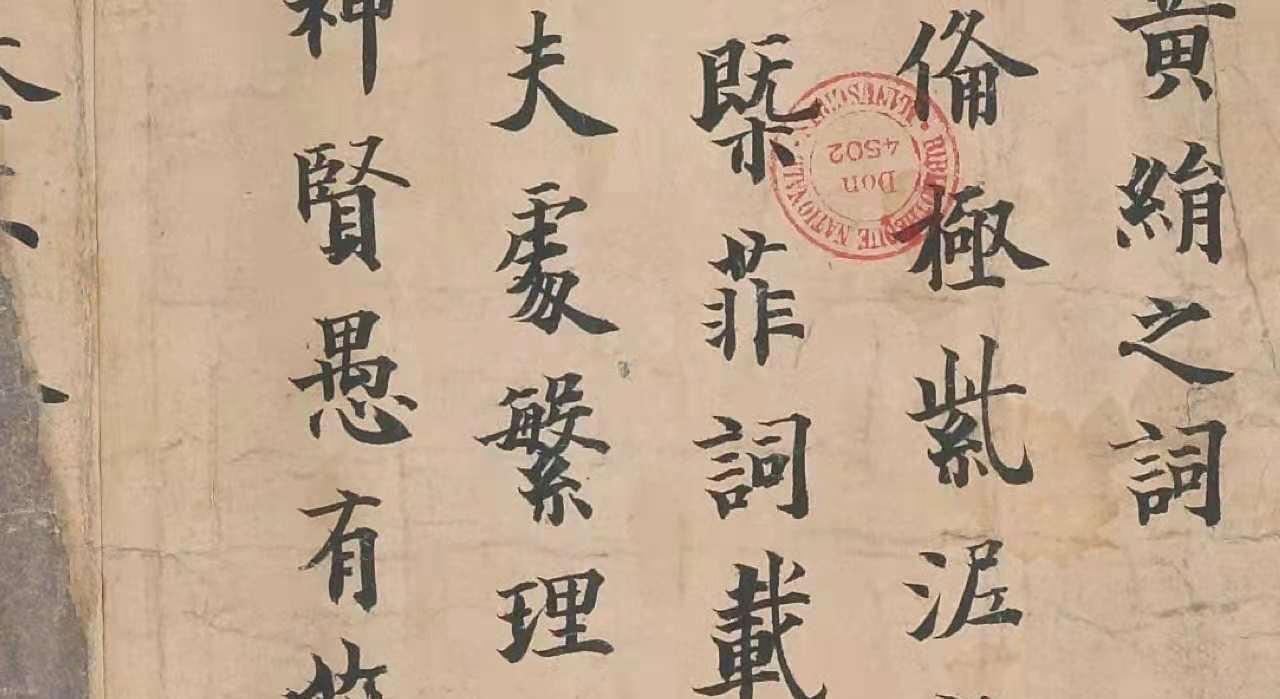 黃絹之詞
俻極紫泥
槩菲詞載
夫處繁理
神賢愚有
BIBLIOTHEQUE NATIONALE MANUSCRITS
Don
4502